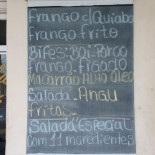 Frango c/Quiabo
Frango frito
Bifes: Boi, Porco
Frango, Figado
Macarrão Alho óleo
Salada. Angu
fritas.
Salada Especial
com 11 ingredientes